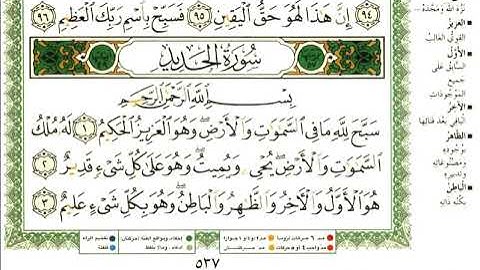 إِنَّ هَٰذَا لَهُوَ حَقُّ ٱلْيَقِينِ ٩٥ فَسَبِّحْ بِٱسْمِ رَبِّكَ ٱلْعَظِيمِ ٩٦
سُورَةُ الْحَدِيدِ
بِسْمِ ٱللَّهِ ٱلرَّحْمَٰنِ ٱلرَّحِيمِ
سَبَّحَ لِلَّهِ مَا فِى ٱلسَّمَٰوَٰتِ وَٱلْأَرْضِ ۖ وَهُوَ ٱلْعَزِيزُ ٱلْحَكِيمُ ١ لَهُۥ مُلْكُ
ٱلسَّمَٰوَٰتِ وَٱلْأَرْضِ ۖ يُحْىِۦ وَيُمِيتُ ۖ وَهُوَ عَلَىٰ كُلِّ شَىْءٍ قَدِيرٌ ٢
هُوَ ٱلْأَوَّلُ وَٱلْءَاخِرُ وَٱلظَّٰهِرُ وَٱلْبَاطِنُ ۖ وَهُوَ بِكُلِّ شَىْءٍ عَلِيمٌ ٣
العزيز
القوي الغالب
الأوّل
السابق على
جميع
الموجودات
الآخر
الباقي بعد فنائها
الظاهر
بوجوده
ومصنوعاته
وتدبيره
الباطن
بكنه ذاته
تفخيم الراء
قلقلة
٥٣٧